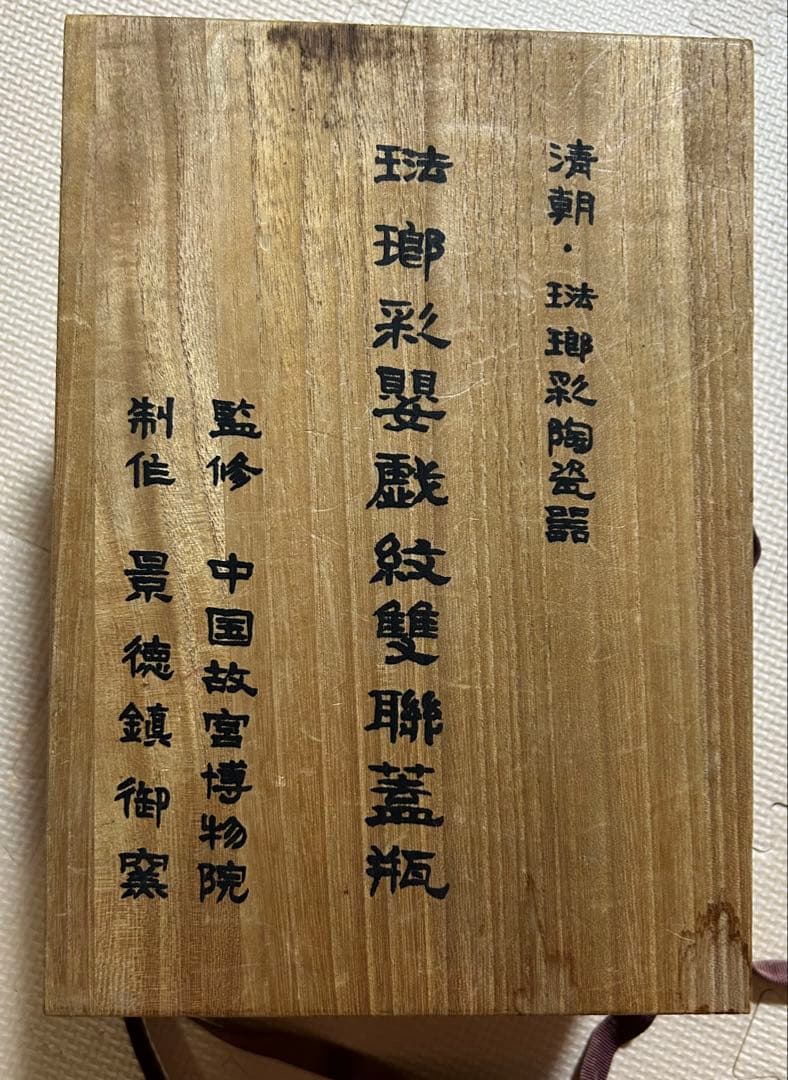 清朝・琺瑯彩陶瓷器
琺瑯彩嬰戯紋雙聯蓋瓶
監修 中国故宮博物院
制作 景德鎮御窯